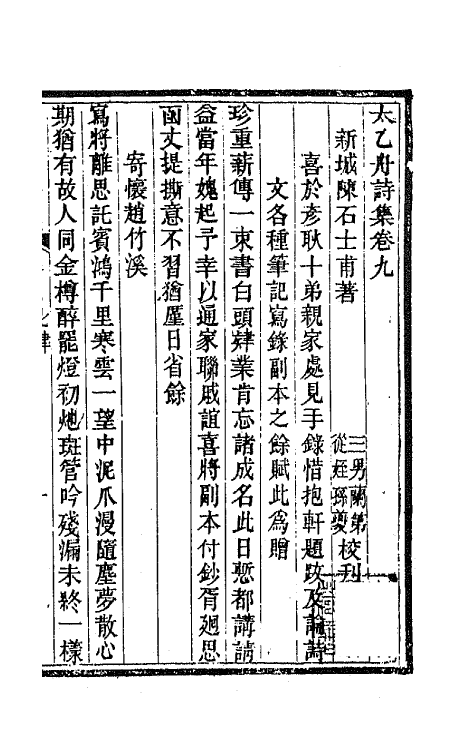 太乙舟詩集卷九
新城陳石士甫著
三男蘭第
從姪孫夔
校刋
喜於彥耿十弟親家處見手錄惜抱軒題跋及論詩
文各種筆記寫錄副本之餘賦此爲贈
珍重薪傳一束書白頭肄業肯忘諸成名此日慙都講請
益當年媿起予幸以通家聯戚誼喜將副本付鈔胥廻思
函丈提撕意不習猶廑日省餘
寄懷趙竹溪
寫將離思託賓鴻千里寒雲一望中泥爪漫隨塵夢散心
期猶有故人同金樽醉罷燈初灺斑管吟殘漏未終一樣